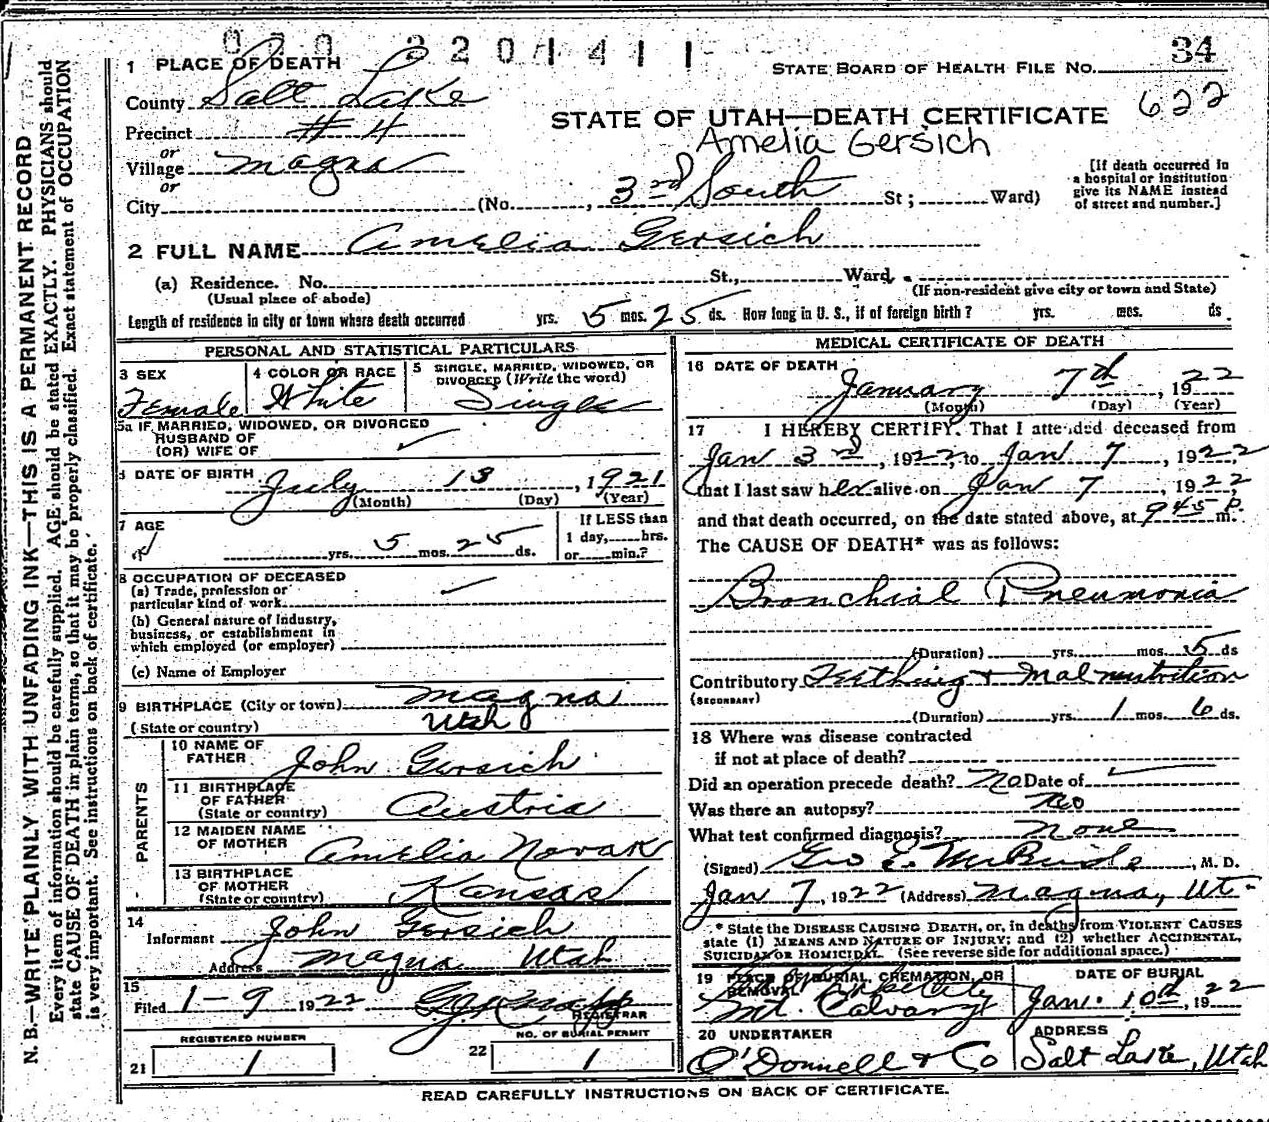 020 2201411
34
STATE BOARD OF HEALTH FILE NO.
622
1 PLACE OF DEATH
County Salt Lake
STATE OF UTAH—DEATH CERTIFICATE
Precinct #4
Amelia Gersich
or
Village Magna
or
City (No. , 3rd South St; Ward)
[If death occurred in
a hospital or institution
give its NAME instead
of street and number.]
2 FULL NAME Amelia Gersich
(a) Residence. No. St., Ward,
(Usual place of abode)
(If non-resident give city or town and State)
Length of residence in city or town where death occurred yrs. 5 mos. 25 ds. How long in U. S., if of foreign birth? yrs. mos. ds.
PERSONAL AND STATISTICAL PARTICULARS
3 SEX
Female
4 COLOR OR RACE
White
5 SINGLE, MARRIED, WIDOWED, OR
DIVORCED (Write the word)
Single
5a IF MARRIED, WIDOWED, OR DIVORCED
HUSBAND OF
(OR) WIFE OF
6 DATE OF BIRTH
July 13, 1921
(Month) (Day) (Year)
7 AGE
yrs. 5 mos. 25 ds.
If LESS than
1 day, hrs.
or min.?
8 OCCUPATION OF DECEASED
(a) Trade, profession or
particular kind of work
(b) General nature of Industry,
business, or establishment in
which employed (or employer)
(c) Name of Employer
9 BIRTHPLACE (City or town) Magna
(State or country) Utah
PARENTS
10 NAME OF
FATHER John Gersich
11 BIRTHPLACE
OF FATHER
(State or country) Austria
12 MAIDEN NAME
OF MOTHER Amelia Novak
13 BIRTHPLACE
OF MOTHER
(State or country) Kansas
14
Informant John Gersich
Address Magna Utah
15
Filed 1-9 1922
REGISTRAR
REGISTERED NUMBER
21 1
NO. OF BURIAL PERMIT
22 1
MEDICAL CERTIFICATE OF DEATH
16 DATE OF DEATH
January 7th, 1922
(Month) (Day) (Year)
17 I HEREBY CERTIFY. That I attended deceased from
Jan 3rd, 1922, to Jan 7, 1922
that I last saw her alive on Jan 7, 1922,
and that death occurred, on the date stated above, at 945 P m.
The CAUSE OF DEATH* was as follows:
Bronchial Pneumonia
(Duration) yrs. mos. 5 ds
Contributory Teething + Malnutrition
(SECONDARY)
(Duration) yrs. 1 mos. 6 ds.
18 Where was disease contracted
if not at place of death?
Did an operation precede death? No Date of
Was there an autopsy? No
What test confirmed diagnosis? none
(Signed) Geo E. McBride, M. D.
Jan 7, 1922 (Address) Magna, Ut.
* State the DISEASE CAUSING DEATH, or, in deaths from VIOLENT CAUSES
state (1) MEANS AND NATURE OF INJURY; and (2) whether ACCIDENTAL,
SUICIDAL OR HOMICIDAL. (See reverse side for additional space.)
19 PLACE OF BURIAL, CREMATION, OR
REMOVAL
Mt. Calvary
DATE OF BURIAL
Jan. 10th, 1922
20 UNDERTAKER
O'Donnell & Co
ADDRESS
Salt Lake, Utah
READ CAREFULLY INSTRUCTIONS ON BACK OF CERTIFICATE.
N. B.—WRITE PLAINLY WITH UNFADING INK—THIS IS A PERMANENT RECORD
Every item of information should be carefully supplied. AGE should be stated EXACTLY. PHYSICIANS should
state CAUSE OF DEATH in plain terms, so that it may be properly classified. Exact statement of OCCUPATION
is very important. See instructions on back of certificate.